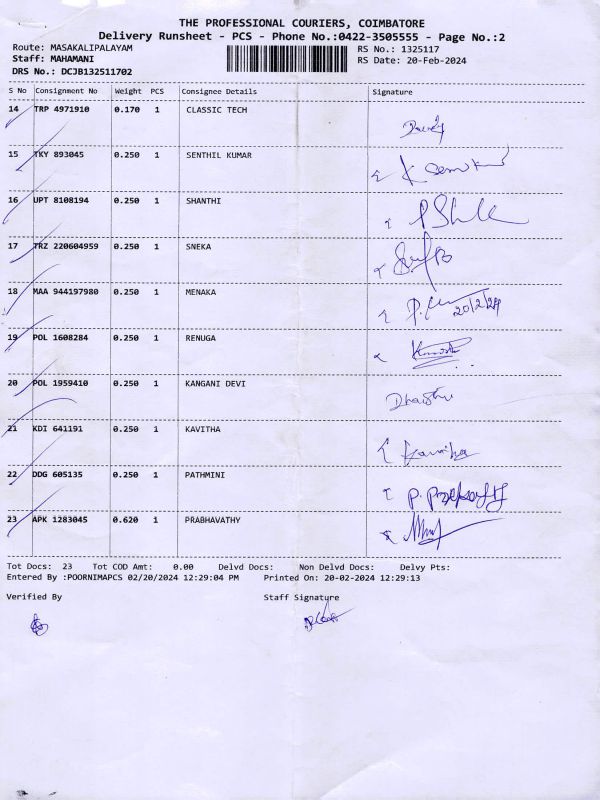 THE PROFESSIONAL COURIERS, COIMBATORE
Delivery Runsheet - PCS - Phone No.:0422-3505555 - Page No.:2
Route: MASAKALIPALAYAM RS No.: 1325117
Staff: MAHAMANI RS Date: 20-Feb-2024
DRS No.: DCJB132511702
S No Consignment No Weight PCS Consignee Details Signature
14 TRP 4971910 0.170 1 CLASSIC TECH
15 TKY 893045 0.250 1 SENTHIL KUMAR
16 UPT 8108194 0.250 1 SHANTHI
17 TRZ 220604959 0.250 1 SNEKA
18 MAA 944197980 0.250 1 MENAKA
20/2/24
19 POL 1608284 0.250 1 RENUGA
20 POL 1959410 0.250 1 KANGANI DEVI
21 KDI 641191 0.250 1 KAVITHA
22 DDG 605135 0.250 1 PATHMINI
23 APK 1283045 0.620 1 PRABHAVATHY
Tot Docs: 23 Tot COD Amt: 0.00 Delvd Docs: Non Delvd Docs: Delvy Pts:
Entered By :POORNIMAPCS 02/20/2024 12:29:04 PM Printed On: 20-02-2024 12:29:13
Verified By Staff Signature